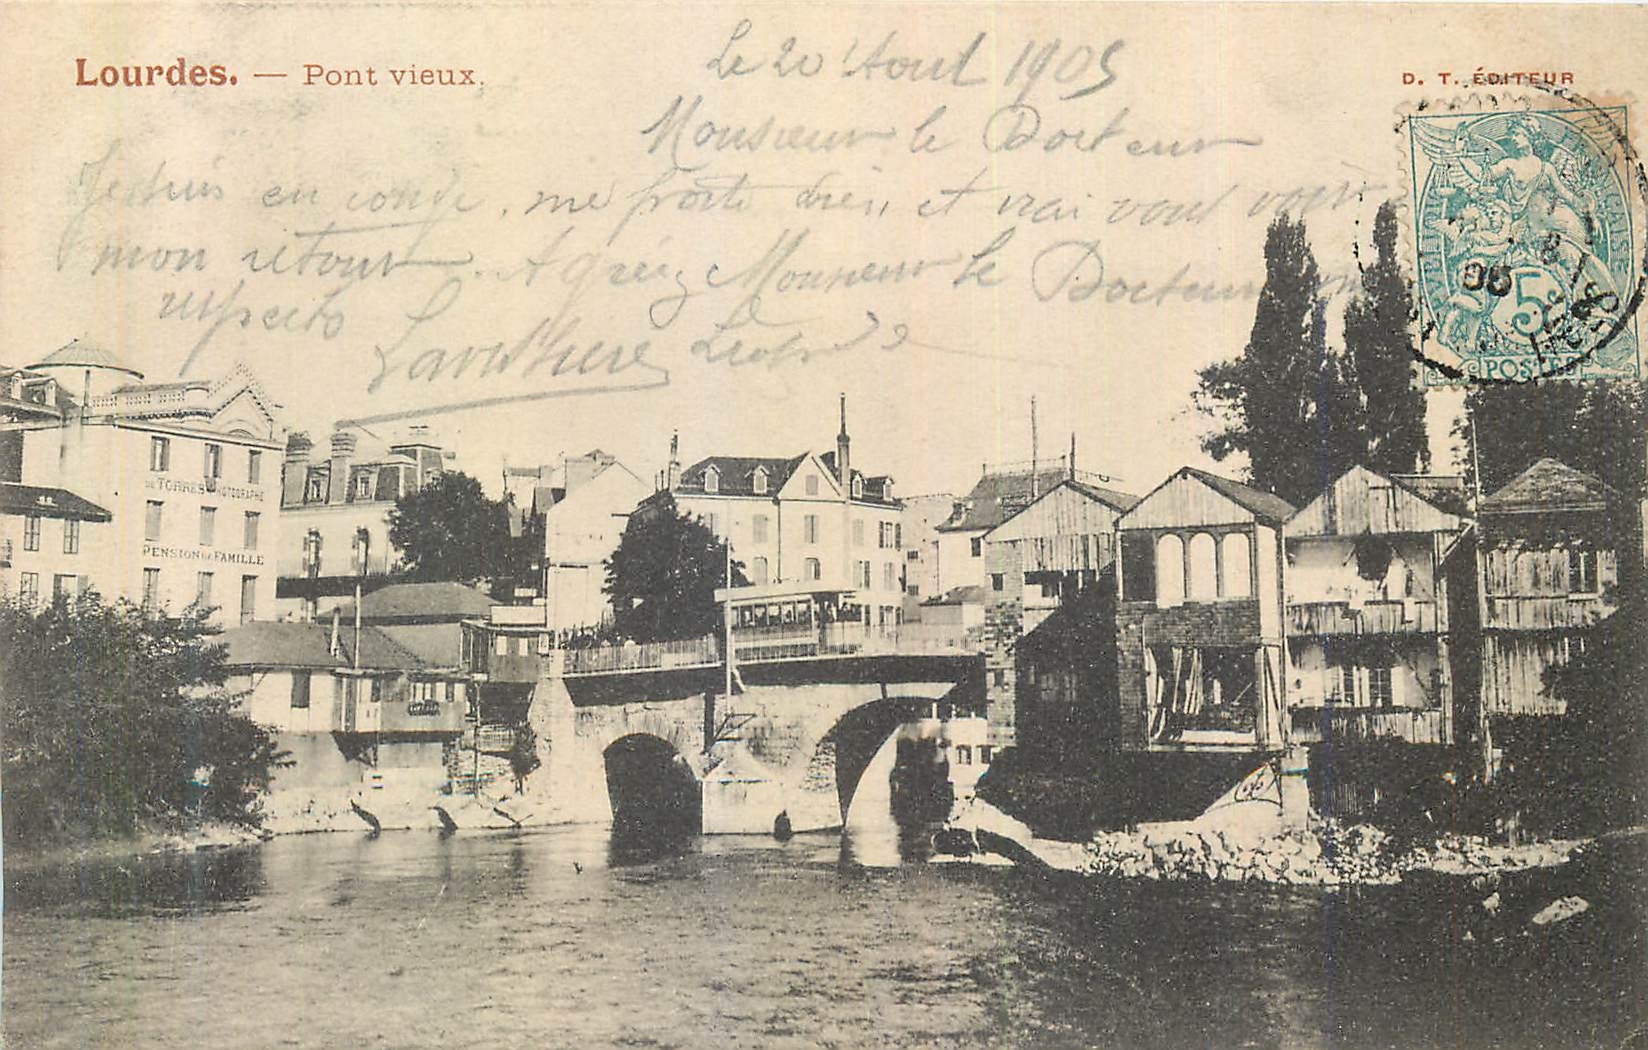 Lourdes. — Pont vieux.
D. T. ÉDITEUR
Le 20 Aout 1905
Monsieur le Docteur
Je suis en congé, me porte bien, et irai vous voir
mon retour. Agréez Monsieur le Docteur
respects
DE TORRES PHOTOGRAPHE
PENSION DE FAMILLE
RÉPUBLIQUE FRANÇAISE
5c
POSTES
05